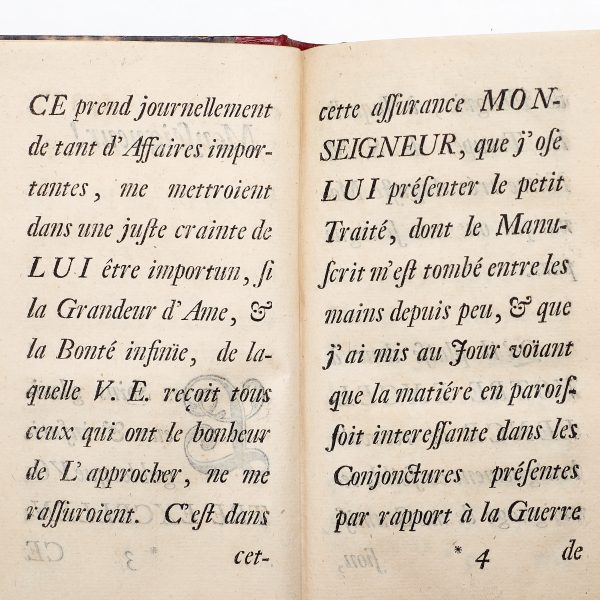 CE prend journellement
de tant d'Affaires impor-
tantes, me mettroient
dans une juſte crainte de
LUI être importun, ſi
la Grandeur d'Ame, &
la Bonté infinïe, de la-
quelle V E. reçoit tous
ceux qui ont le bonheur
de L'approcher, ne me
raſſuroient. C'eſt dans
* 3 cet-
cette aſſurance MON-
SEIGNEUR, que j'oſe
LUI préſenter le petit
Traité, dont le Manu-
ſcrit m'eſt tombé entre les
mains depuis peu, & que
j'ai mis au Jour voïant
que la matiére en paroiſ-
ſoit intereſſante dans les
Conjonctures préſentes
par rapport à la Guerre
* 4 de